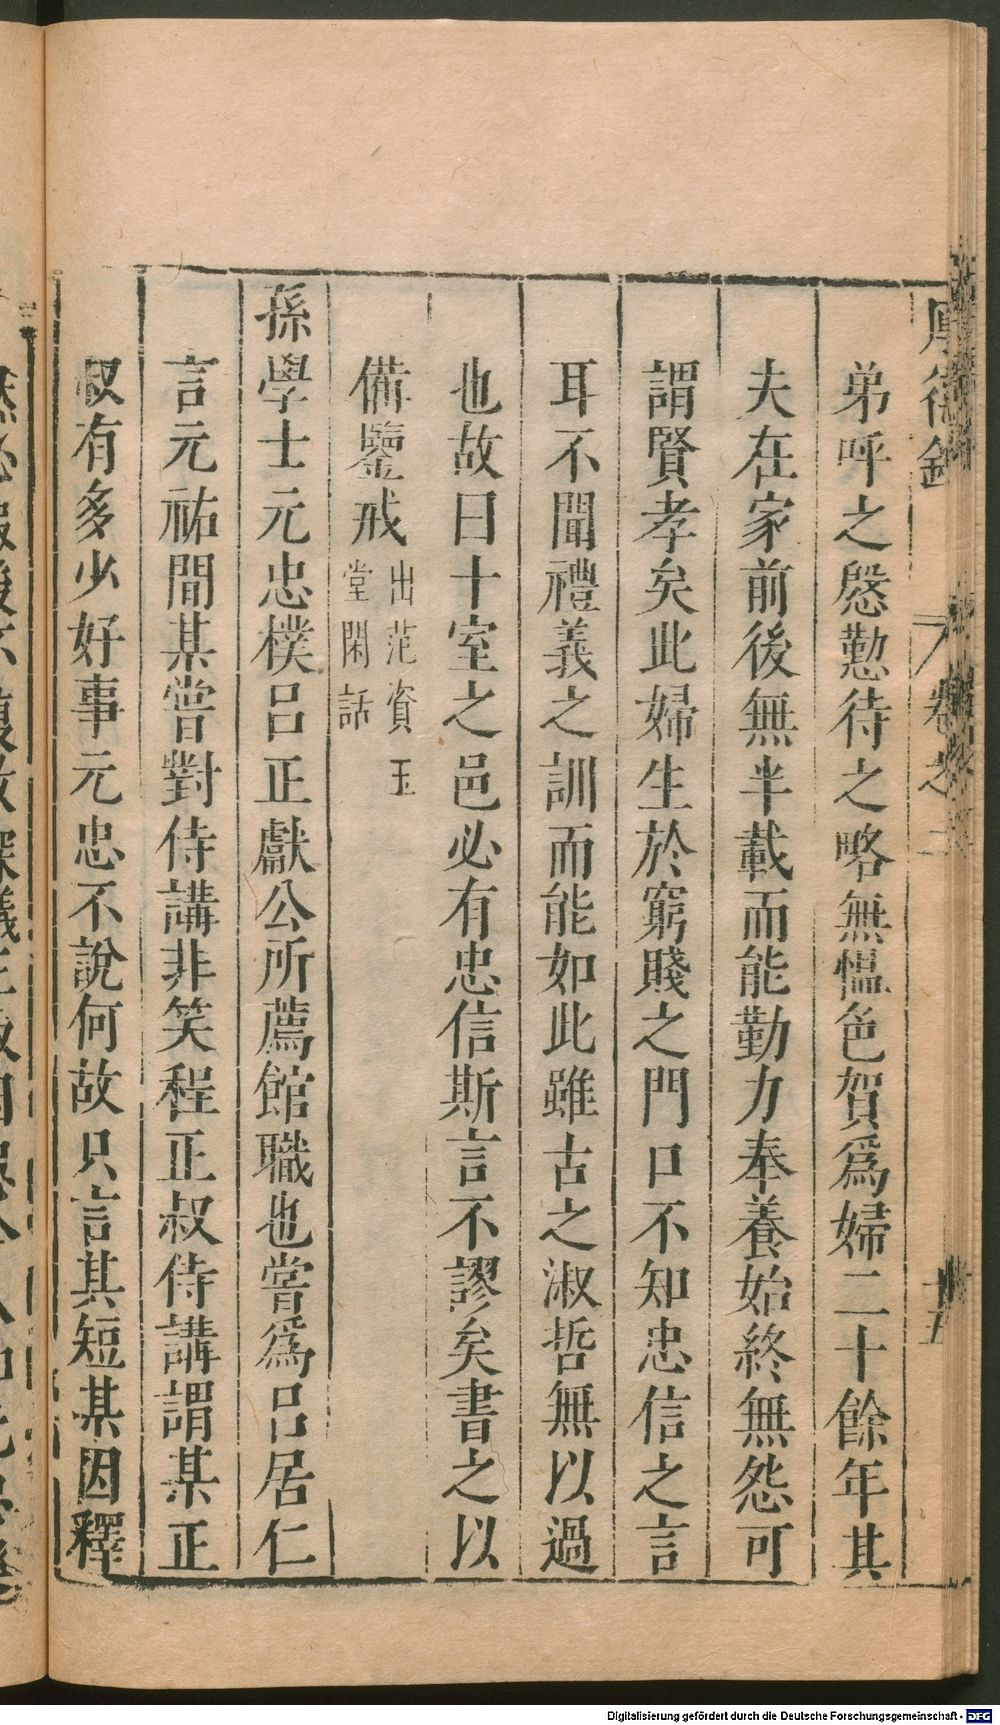 厚德錄 卷之二 十五
弟呼之慇懃待之略無慍色賀爲婦二十餘年其
夫在家前後無半載而能勤力奉養始終無怨可
謂賢孝矣此婦生於窮賤之門口不知忠信之言
耳不聞禮義之訓而能如此雖古之淑哲無以過
也故曰十室之邑必有忠信斯言不謬矣書之以
備鑒戒出范資玉
堂閑話
孫學士元忠樸呂正獻公所薦館職也嘗爲呂居仁
言元祐間某嘗對侍講非笑程正叔侍講謂某正
叔有多少好事元忠不說何故只言其短某因釋
Digitalisierung gefördert durch die Deutsche Forschungsgemeinschaft - DFG